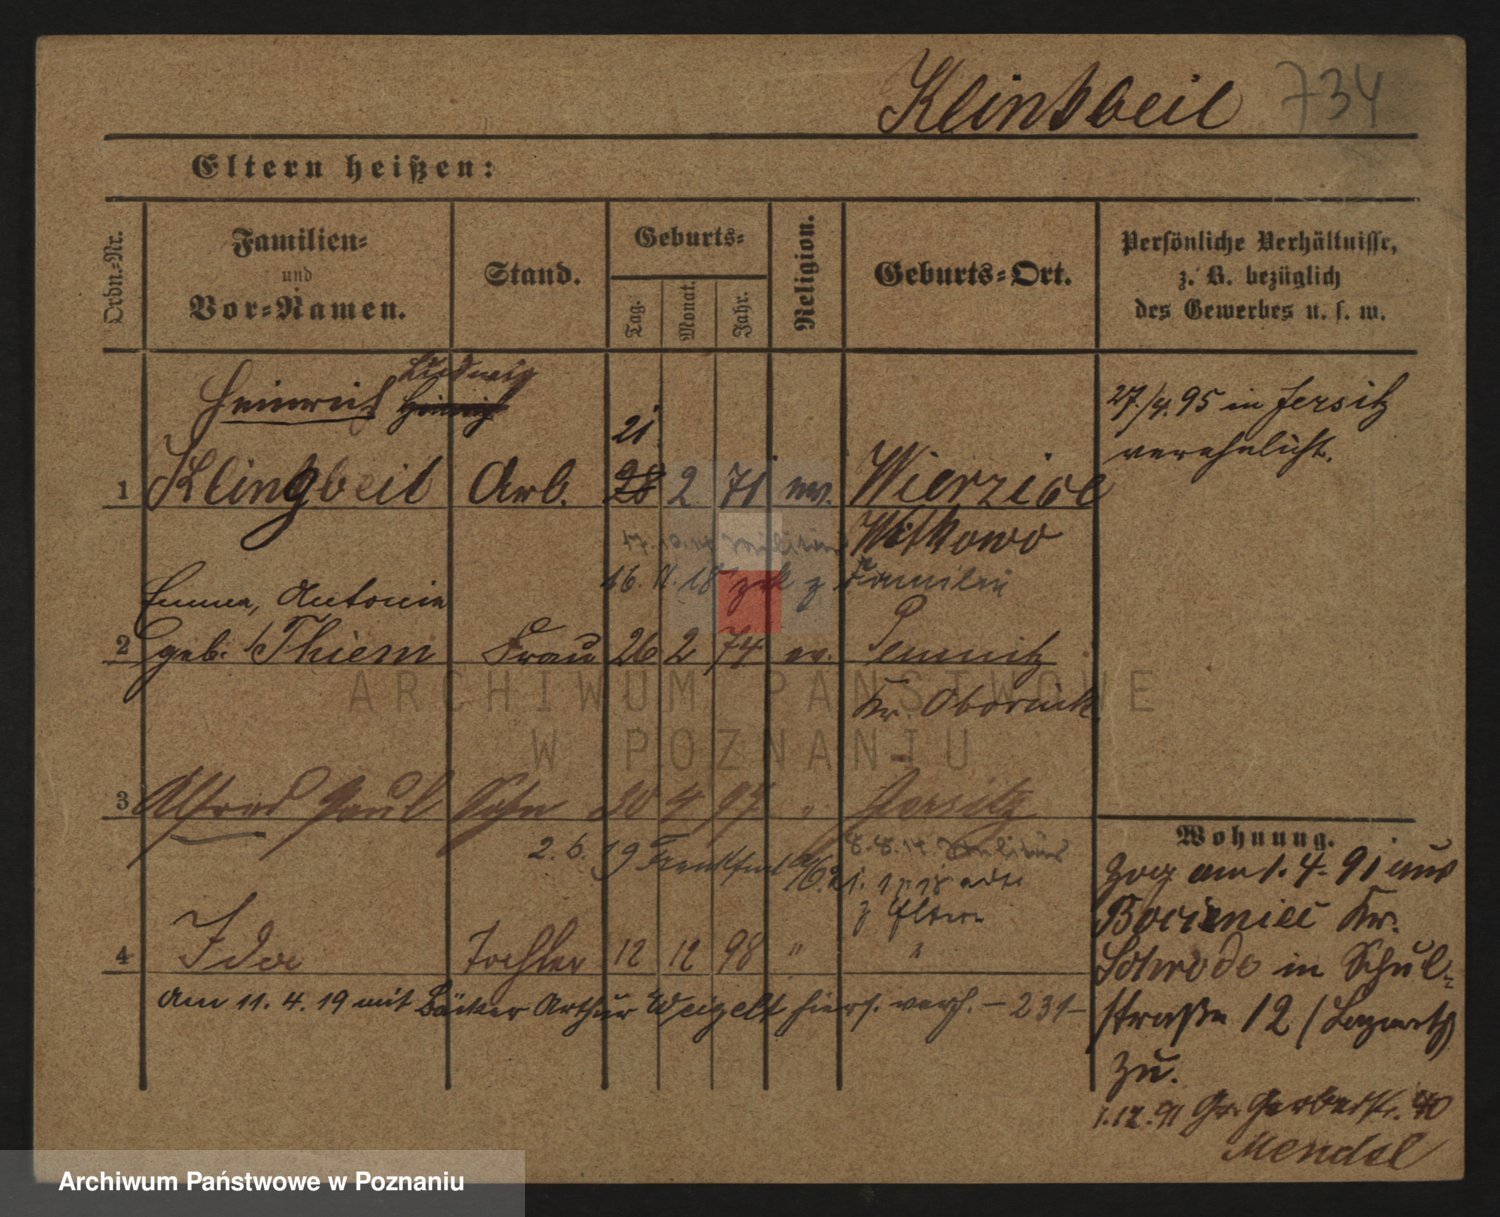 Klinkbeil 734
Eltern heißen:
Ordn.-Nr.
Familien-
und
Vor-Namen.
Stand.
Geburts-
Tag.
Monat.
Jahr.
Religion.
Geburts-Ort.
Persönliche Verhältnisse,
z. B. bezüglich
des Gewerbes u. s. w.
Ludwig
Heinrich Heinrich
27./4. 95 in Jersitz
verehelicht.
21
1 Klingbeil Arb. 28 2 71 ev. Wierzice
Witkowo
Militär
16. 11. 18 zck z Familie
Emma, Antonie
2 geb. Thiem Frau 26 2 74 ev.
Kr. Obornik
3 Alfred Paul Sohn 30 4 97 " Jersitz
2. 6. 19 Frankfurt a/O. 8. 8. 14 Militär
21. 1
z Eltern
4 Ida Tochter 12 12 98 " "
Am 11. 4. 19 mit Bäcker Arthur Weigelt hiers. verh. – 231–
Wohnung.
Zog am 1. 4. 91 aus
Kr.
Schroda in Schul-
straße 12 /
zu.
1.12.91 Gr. Gerberstr. 40
Mendel
ARCHIWUM PAŃSTWOWE
W POZNANIU
Archiwum Państwowe w Poznaniu